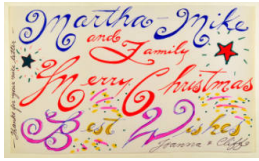 Martha - Mike
and Family
Merry Christmas
Best Wishes
Thanks for your nice letter -